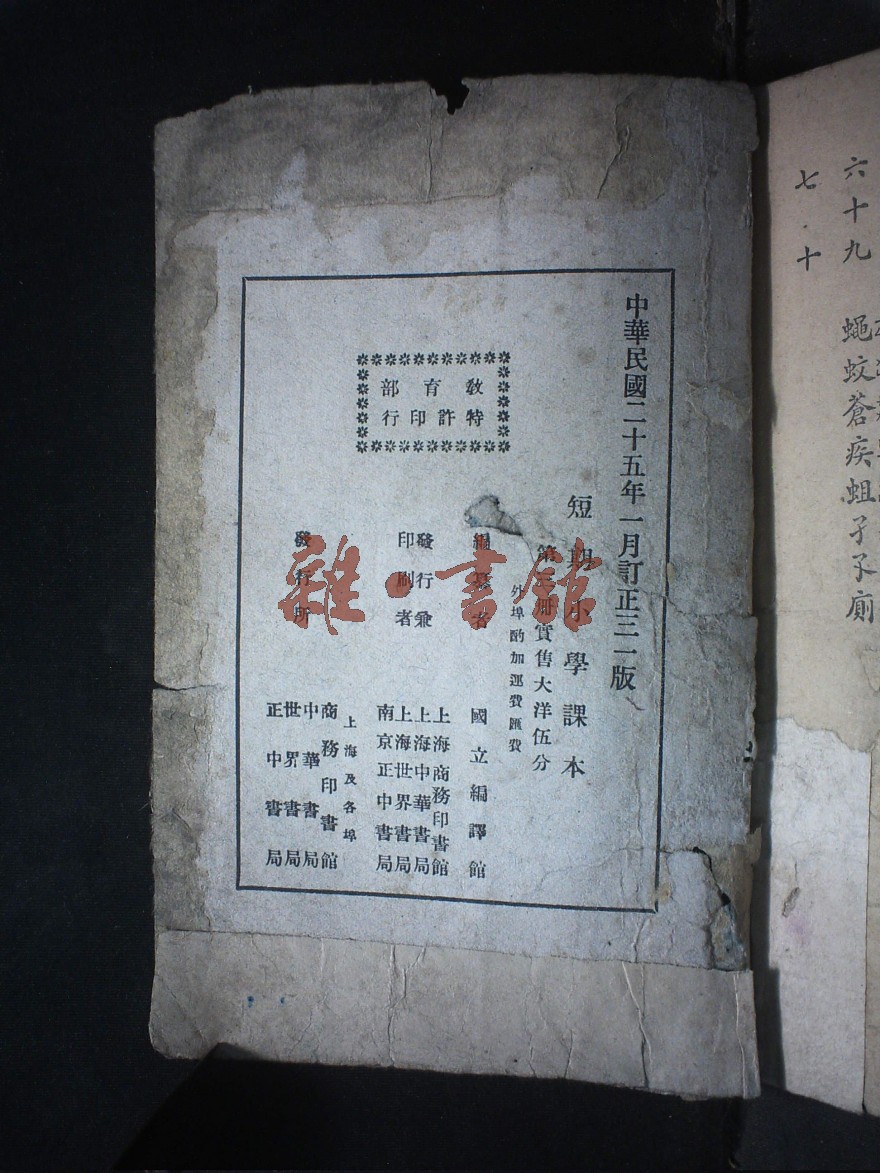 中華民國二十五年一月訂正三一版
短期小學課本
第三冊實售大洋伍分
外埠酌加運費匯費
教育部
特許印行
編纂者
國立編譯館
發行兼
印刷者
上海商務印書館
上海中華書局
上海世界書局
南京正中書局
發行所
上海及各埠
商務印書館
中華書局
世界書局
正中書局
雜·書館
六十九
蠅蚊蒼疾蛆子孓廁
七十